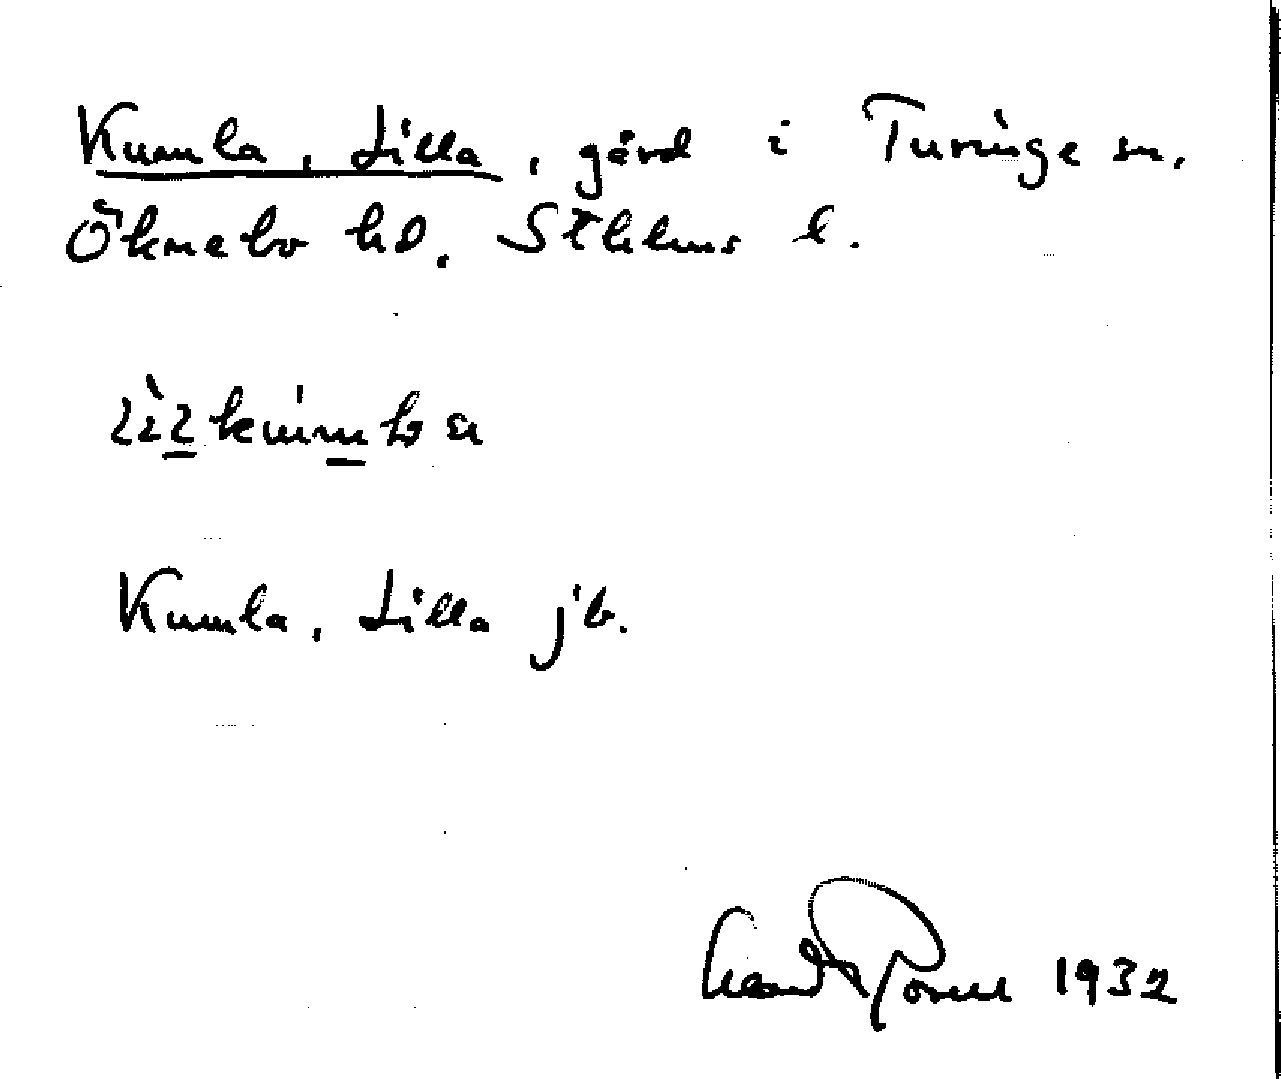 Kumla, Lilla, gård i Turinge sn.
Öknebo hd. Sthlms l.
Kumla, Lilla jb.
1932